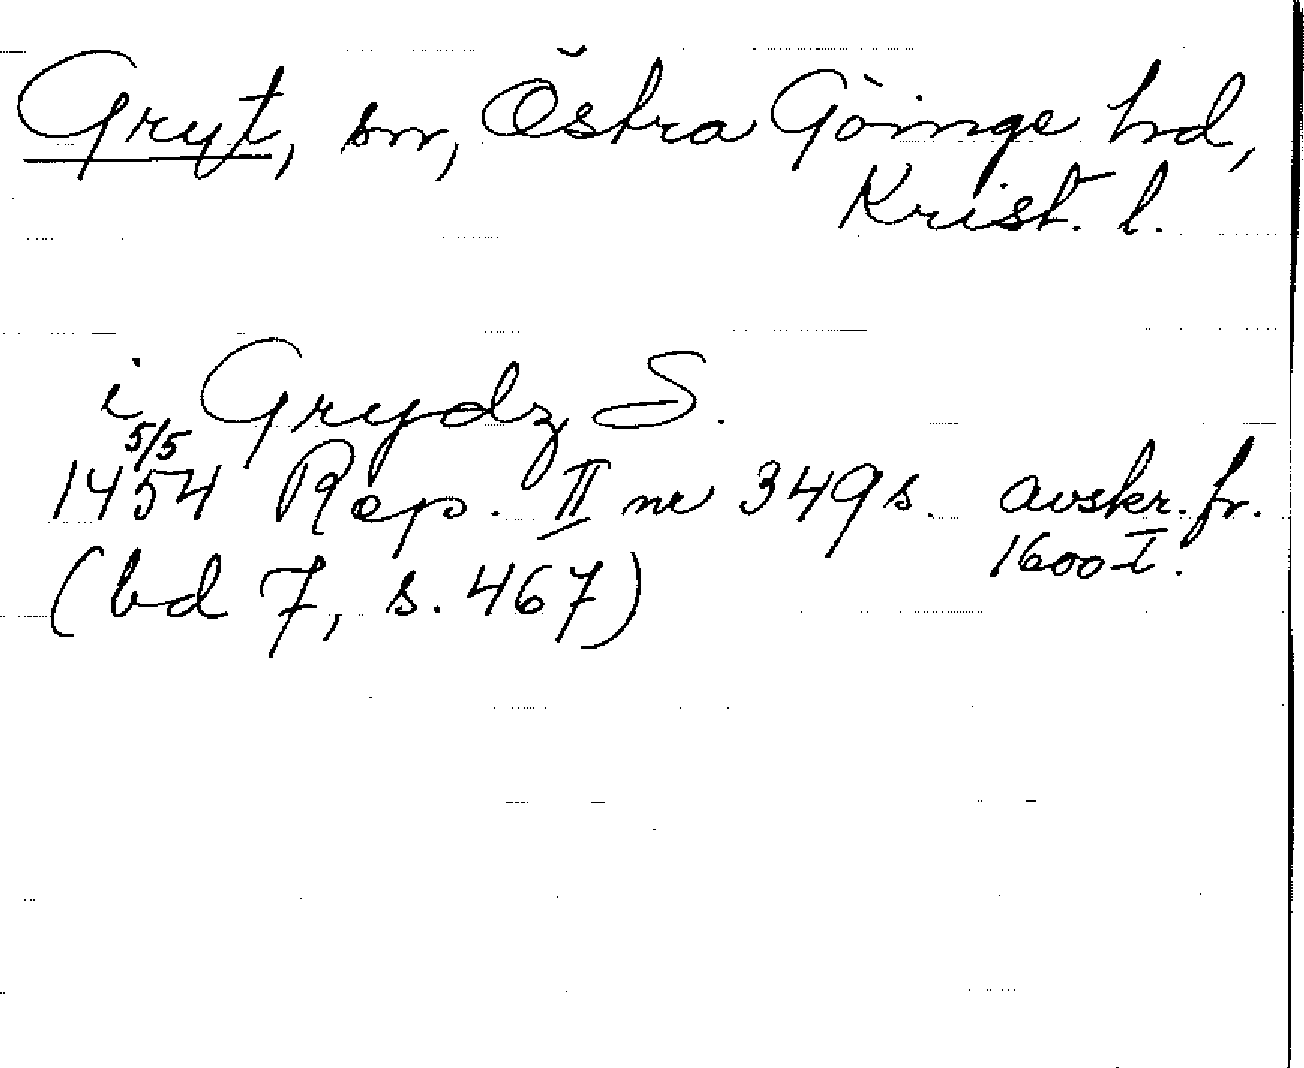 Gryt, sn, Östra Göinge hd,
Krist. l.
i Grydz S.
5/5
1454 Rep. II nr 349 s. avskr. fr.
1600-t.
(bd 7, s. 467)